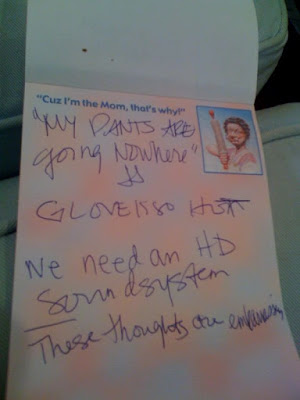 "Cuz I'm the Mom, that's why!"
"MY PANTS ARE
going Nowhere"
JJ
GLOVE IS SO HOT
We need an HD
Soundsystem
These thoughts are embarrassing